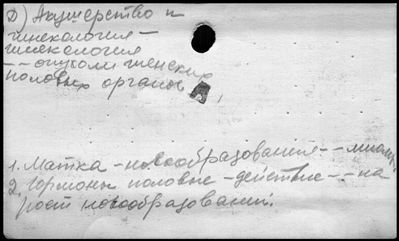 Ф) Акушерство и
гинекология –
гинекология
– – опухоли женских
половых органов
1. Матка – новообразования – – миомы.
2. Гормоны половые – действие – – на
рост новообразований.